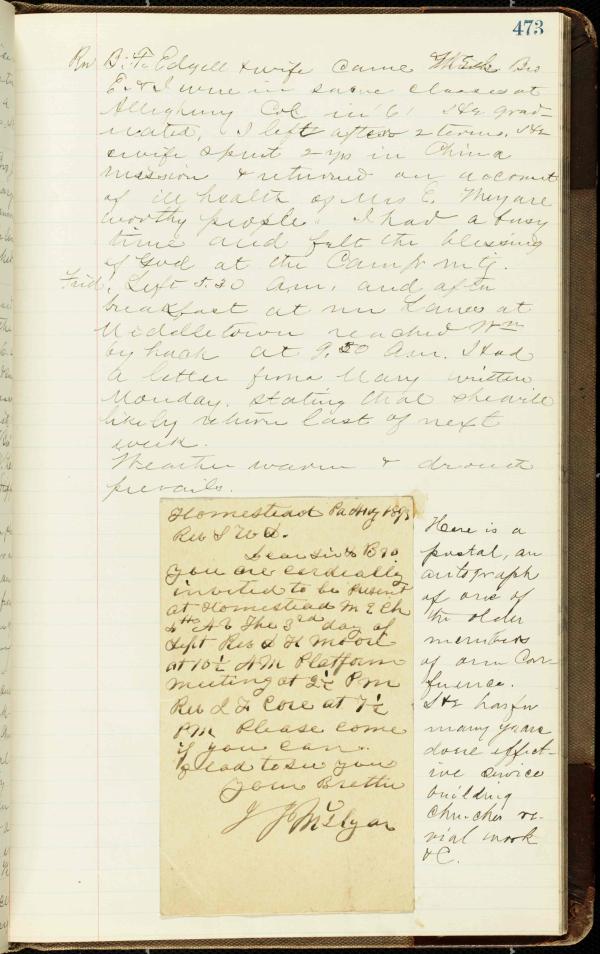 473
Rev B. F. Edgell & wife came M E ch Bro
E. & I were in same classes at
Allegheny Col in '61 He grad-
uated, I left after 2 terms. He
& wife spent 2 yrs in China
mission & returned on account
of ill health of Mrs E. They are
worthy people. I had a busy
time and felt the blessing
of God at the Camp mtg.
Frid. Left 5.30 Am. and after
breakfast at mr Lanes at
Middletown reached Wm
by hack at 9.30 Am. Had
a letter from Mary written
Monday. stating that she will
likely return last of next
week.
Weather warm & drouth
prevails.
Homestead Pa Aug
Rev S W D.
Dear Sir & Bro
You are cordially
invited to be Present
at Homestead M E Ch
The 3rd day of
Sept Rev D H
at 10½ A M Platform
Meeting at 2½ P.m
Rev at 7½
PM Please come
if you can
Glad to see you
Your Brother
J J McIlyar
Here is a
postal, an
autograph
of one of
the older
members
of our Con-
ference.
He has for
many years
done effect-
ive service
building
churches re-
vival work
&C.